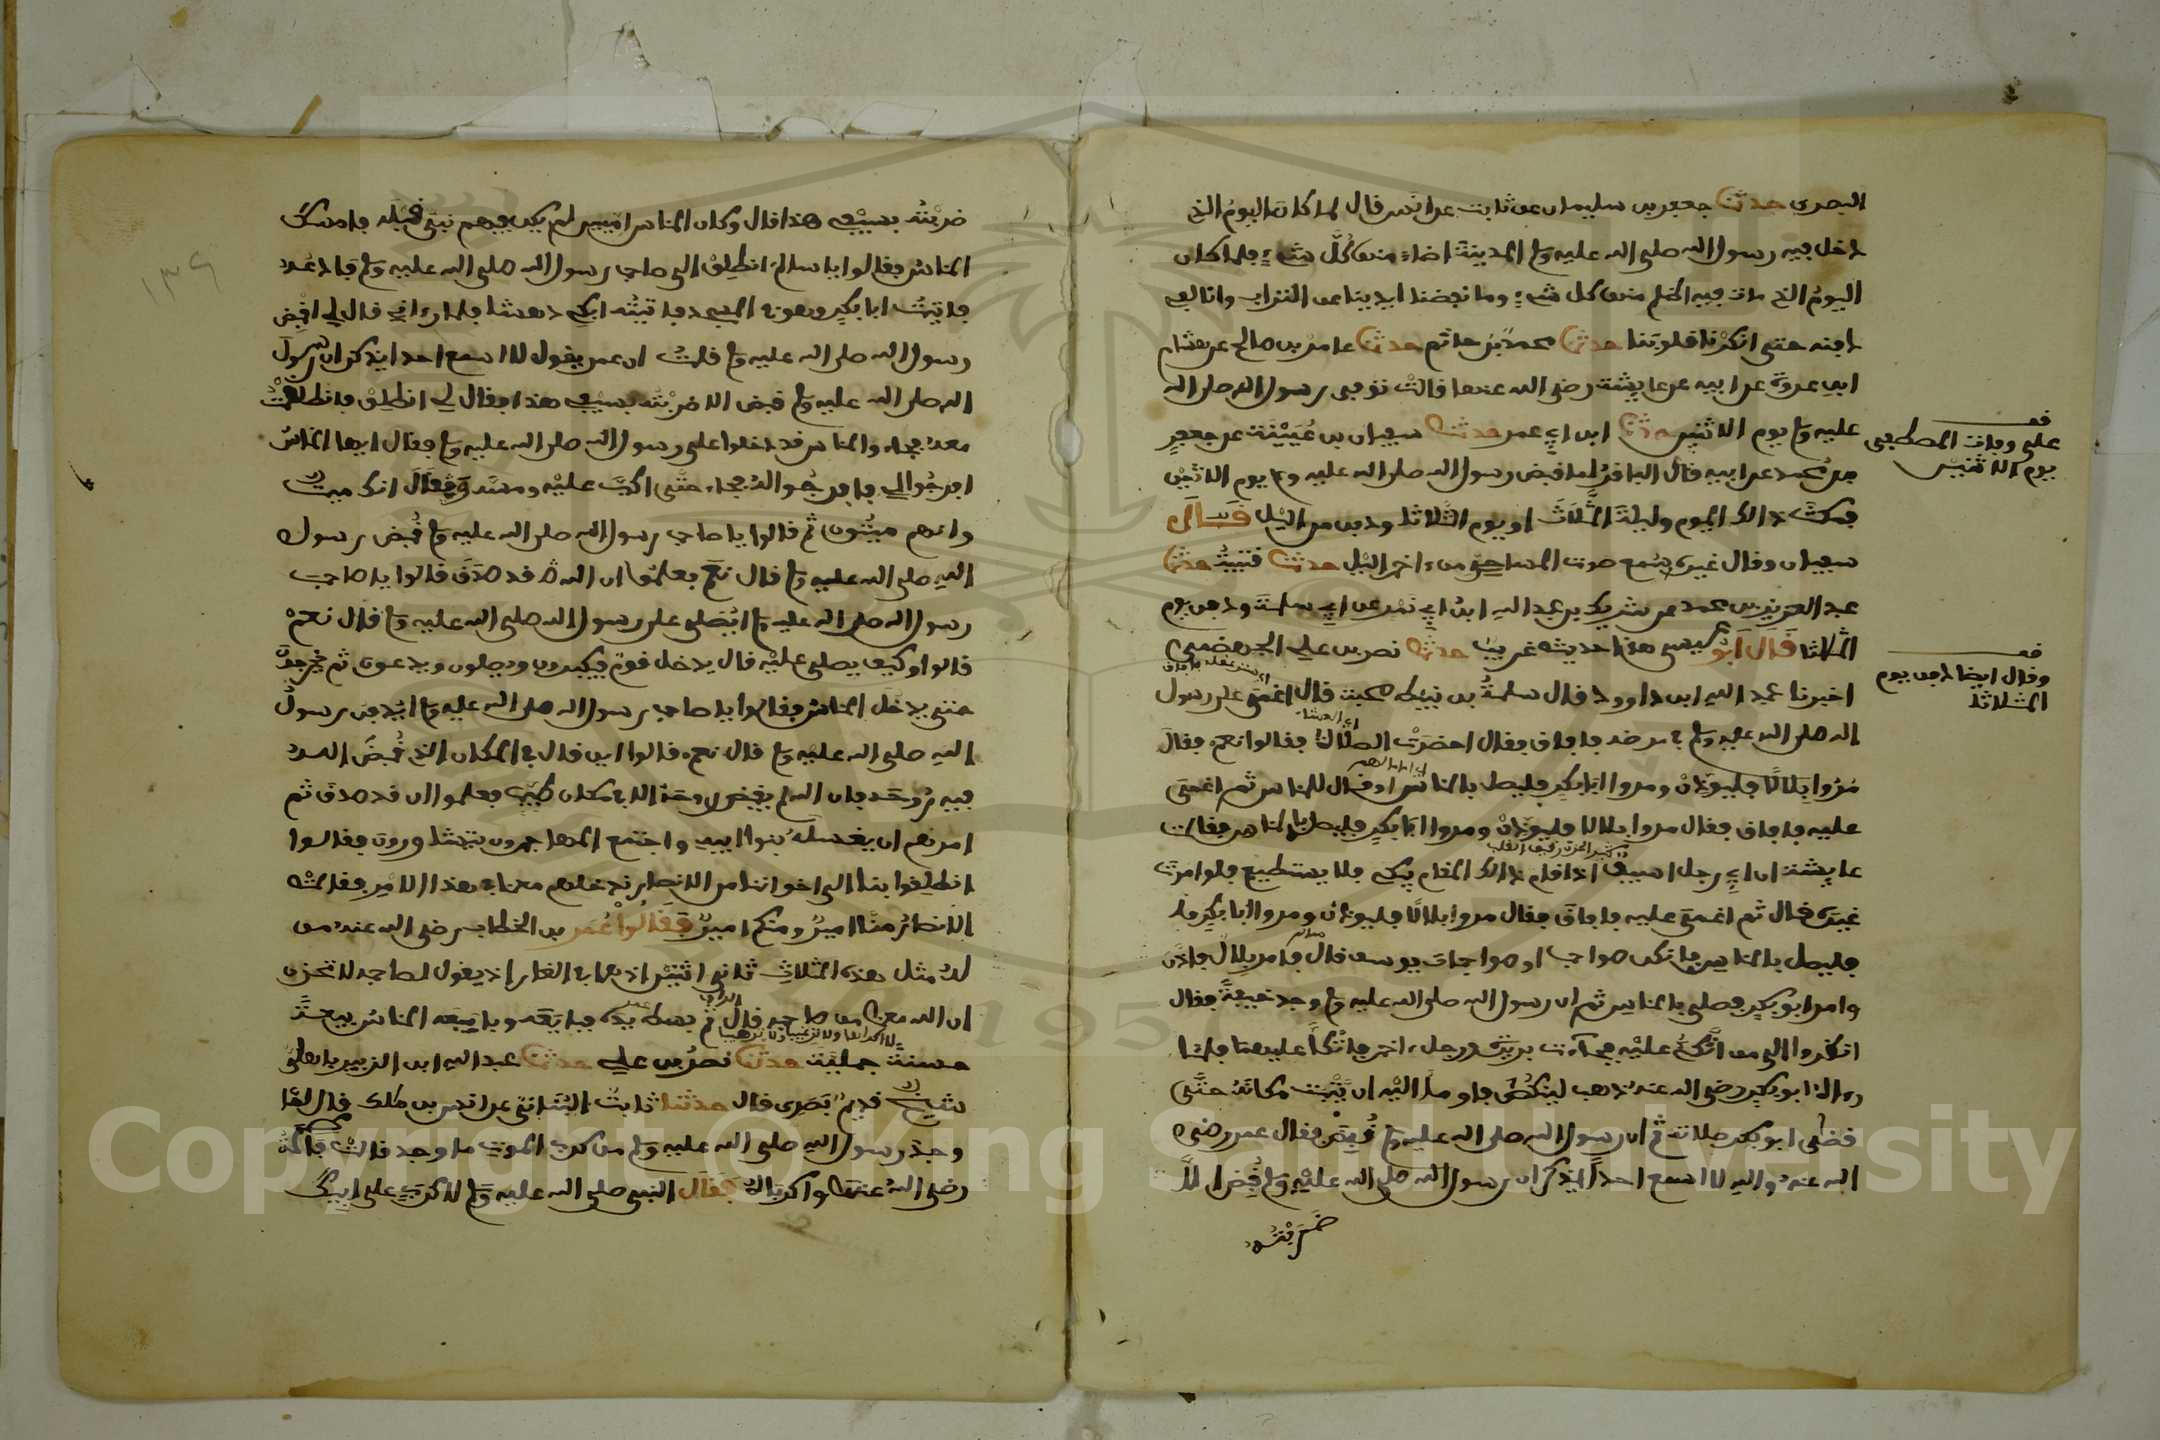 البصرى حدثنا جعفر بن سليمان عن ثابت عن انس قال لما كان اليوم الذي
دخل فيه رسول الله صلى الله عليه وسلم المدينة اضاء منها كل شيء فلما كان
اليوم الذي مات فيه اظلم منها كل شيء وما نفضنا ايدينا عن التراب وانا لفي
دفنه حتى انكرنا قلوبنا حدثنا محمد بن حاتم حدثنا عامر بن صالح عن هشام
ابن عروة عن ابيه عن عايشة رضي الله عنها قالت توفي رسول الله صلى الله
عليه وسلم يوم الاثنين حدثنا ابن ابي عمر حدثنا سفيان بن عيينة عن جعفر
بن محمد عن ابيه قال الباقر لما قبض رسول الله صلى الله عليه وسلم يوم الاثنين
فمكث ذالك اليوم وليلة الثلاثاء او يوم الثلاثا ودفن من الليل قال
سفيان وقال غيره يسمع صوت المساحي من ءاخر الليل حدثنا قتيبة حدثنا
عبد العزيز بن محمد عن شريك بن عبد الله ابن ابي نمر عن ابي سلمة ودفن يوم
الثلاثا قال ابو عيسى هذا حديث غريب حدثنا نصر بن علي الجهضمي
اخبرنا عبد الله ابن داوود قال سلمة بن نبيط قال اغمي على رسول
الله صلى الله عليه وسلم في مرضه فافاق فقال احضرت الصلاة فقالوا نعم فقال
مروا بلالا فليوذن ومروا ابا بكر فليصل بالناس او قال للناس ثم اغمي
عليه فافاق فقال مروا بلالا فليوذن ومروا ابا بكر فليصل بالناس فقالت
عايشة ان ابي رجل اسيف اذا قام ذالك المقام يبكي فلا يستطيع فلو امرت
غيره قال ثم اغمي عليه فافاق فقال مروا بلالا فليوذن ومروا ابا بكر
فليصل بالناس فانكن صواحب او صواحبات يوسف قال فامر بلال فاذن
وامر ابو بكر فصلى بالناس ثم ان رسول الله صلى الله عليه وسلم وجد خفة فقال
انظروا الي من اتكئ عليه فجاءت بريرة ورجل ءاخر فاتكا عليهما فلما
رءاه ابو بكر رضي الله عنه ذهب لينكص فاوما اليه ان يثبت مكانه حتى
قضى ابو بكر صلاته ثم ان رسول الله صلى الله عليه وسلم قبض فقال عمر رضي
الله عنه والله لا اسمع احدا يذكر ان رسول الله صلى الله عليه وسلم قبض الا
ضربته
فف
على وفات المصطفى
يوم الاثنين
فف
وقال ايضا دفن يوم
الثلاثا
١٣٩
ضربته بسيفي هذا قال وكان الناس اميين لم يكن فيهم نبي قبله فامسك
الناس فقالوا يا سالم انطلق الى صاحب رسول الله صلى الله عليه وسلم فادعه
فاتيت ابا بكر وهو في المسجد فاتيته ابكي دهشا فلما رءاني قال لي اقبض
رسول الله صلى الله عليه وسلم قلت ان عمر يقول لا اسمع احدا يذكر ان رسول
الله صلى الله عليه وسلم قبض الا ضربته بسيفي هذا فقال لي انطلق فانطلقت
معه فجاء والناس قد دخلوا على رسول الله صلى الله عليه وسلم فقال ايها الناس
افرجوا لي فافرجوا له فجاء حتى اكب عليه ومسه فقال انك ميت
وانهم ميتون ثم قالوا يا صاحب رسول الله صلى الله عليه وسلم اقبض رسول
الله صلى الله عليه وسلم قال نعم فعلموا ان قد صدق قالوا يا صاحب
رسول الله صلى الله عليه وسلم ايصلى على رسول الله صلى الله عليه وسلم قال نعم
قالوا وكيف يصلى عليه قال يدخل قوم فيكبرون ويصلون ويدعون ثم يخرجون
حتى يدخل الناس فقالوا يا صاحب رسول الله صلى الله عليه وسلم ايدفن رسول
الله صلى الله عليه وسلم قال نعم قالوا اين قال في المكان الذي قبض الله
فيه روحه فان الله لم يقبض روحه الا في مكان طيب فعلموا ان قد صدق ثم
امرهم ان يغسله بنوا ابيه واجتمع المهاجرون يتشاورون فقالوا
انطلقوا بنا الى اخواننا من الانصار ندخلهم معنا في هذا الامر فقالت
الانصار منا امير ومنكم امير فقالوا عمر بن الخطاب رضي الله عنه من
له مثل هذه الثلاث ثاني اثنين اذ هما في الغار اذ يقول لصاحبه لا تحزن
ان الله معنا من صاحبه قال ثم بسط يده فبايعه وبايعه الناس بيعة
حسنة جميلة حدثنا نصر بن علي حدثنا عبد الله ابن الزبير باهلي
شيخ قديم بصرى قال حدثنا ثابت البناني عن انس بن ملك قال لما
وجد رسول الله صلى الله عليه وسلم من كرب الموت ما وجد قالت فاطمة
رضي الله عنها واكرباه فقال النبي صلى الله عليه وسلم لا كرب على ابيك
Copyright © King Saud University
1957